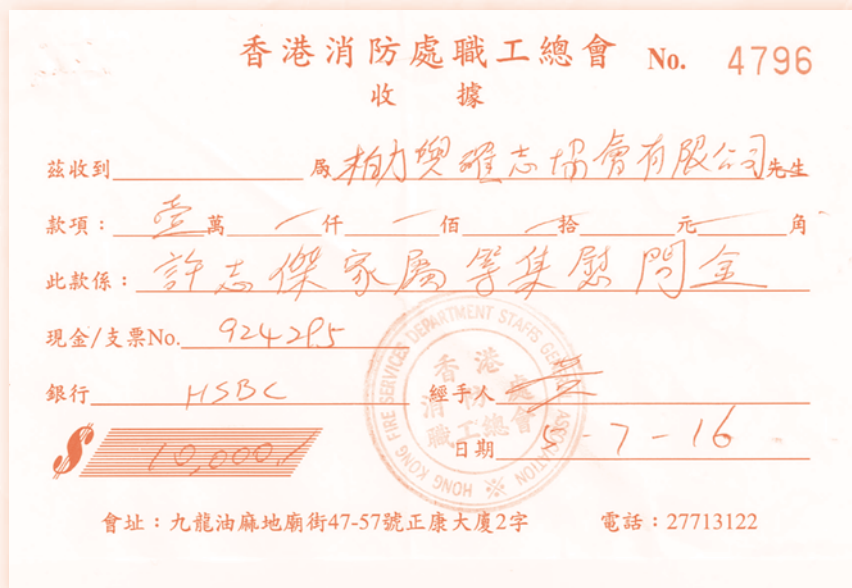 香港消防處職工總會 No. 4796
收據
茲收到 局 柏力奧羅志協會有限公司 先生
款項：壹萬 一仟 一佰 一拾 元 一角
此款係：許志傑家屬籌集慰問金
現金/支票No. 924295
銀行 HSBC 經手人
日期 5-7-16
$ 10,000/
HONG KONG FIRE SERVICES DEPARTMENT STAFFS GENERAL ASSOCIATION
香港消防處職工總會
會址：九龍油麻地廟街47-57號正康大廈2字 電話：27713122